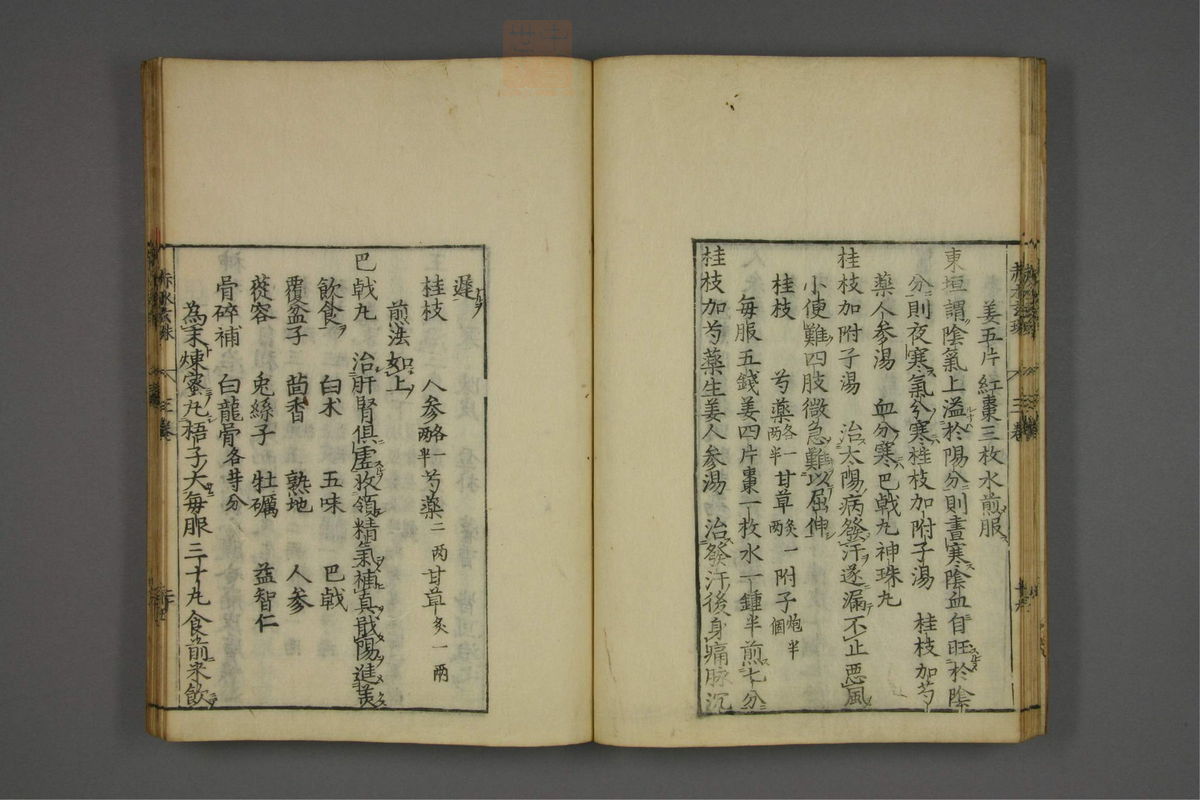 姜五片紅棗三枚水煎服
東垣謂陰氣上溢於陽分則晝寒陰血自旺於陰
分則夜寒氣分寒桂枝加附子湯　桂枝加芍
藥人參湯　血分寒巴戟丸神珠丸
桂枝加附子湯　治太陽病發汗遂漏不止惡風
小便難四肢微急難以屈伸
桂枝　芍藥各一兩半　甘草炙一兩　附子炮半個
每服五錢姜四片棗一枚水一鍾半煎七分
桂枝加芍藥生姜人參湯　治發汗後身痛脉沉
遲
桂枝　人參各一兩半　芍藥二兩　甘草炙一兩
煎法如上
巴戟丸　治肝腎俱虛收領精氣補真戢陽進羙
飲食
白术　五味　巴戟
覆盆子　茴香　熟地　人參
蓯容　兎絲子　牡礪　益智仁
骨碎補　白龍骨各等分
為末煉蜜丸梧子大每服三十丸食前米飲
赤水玄珠　三卷